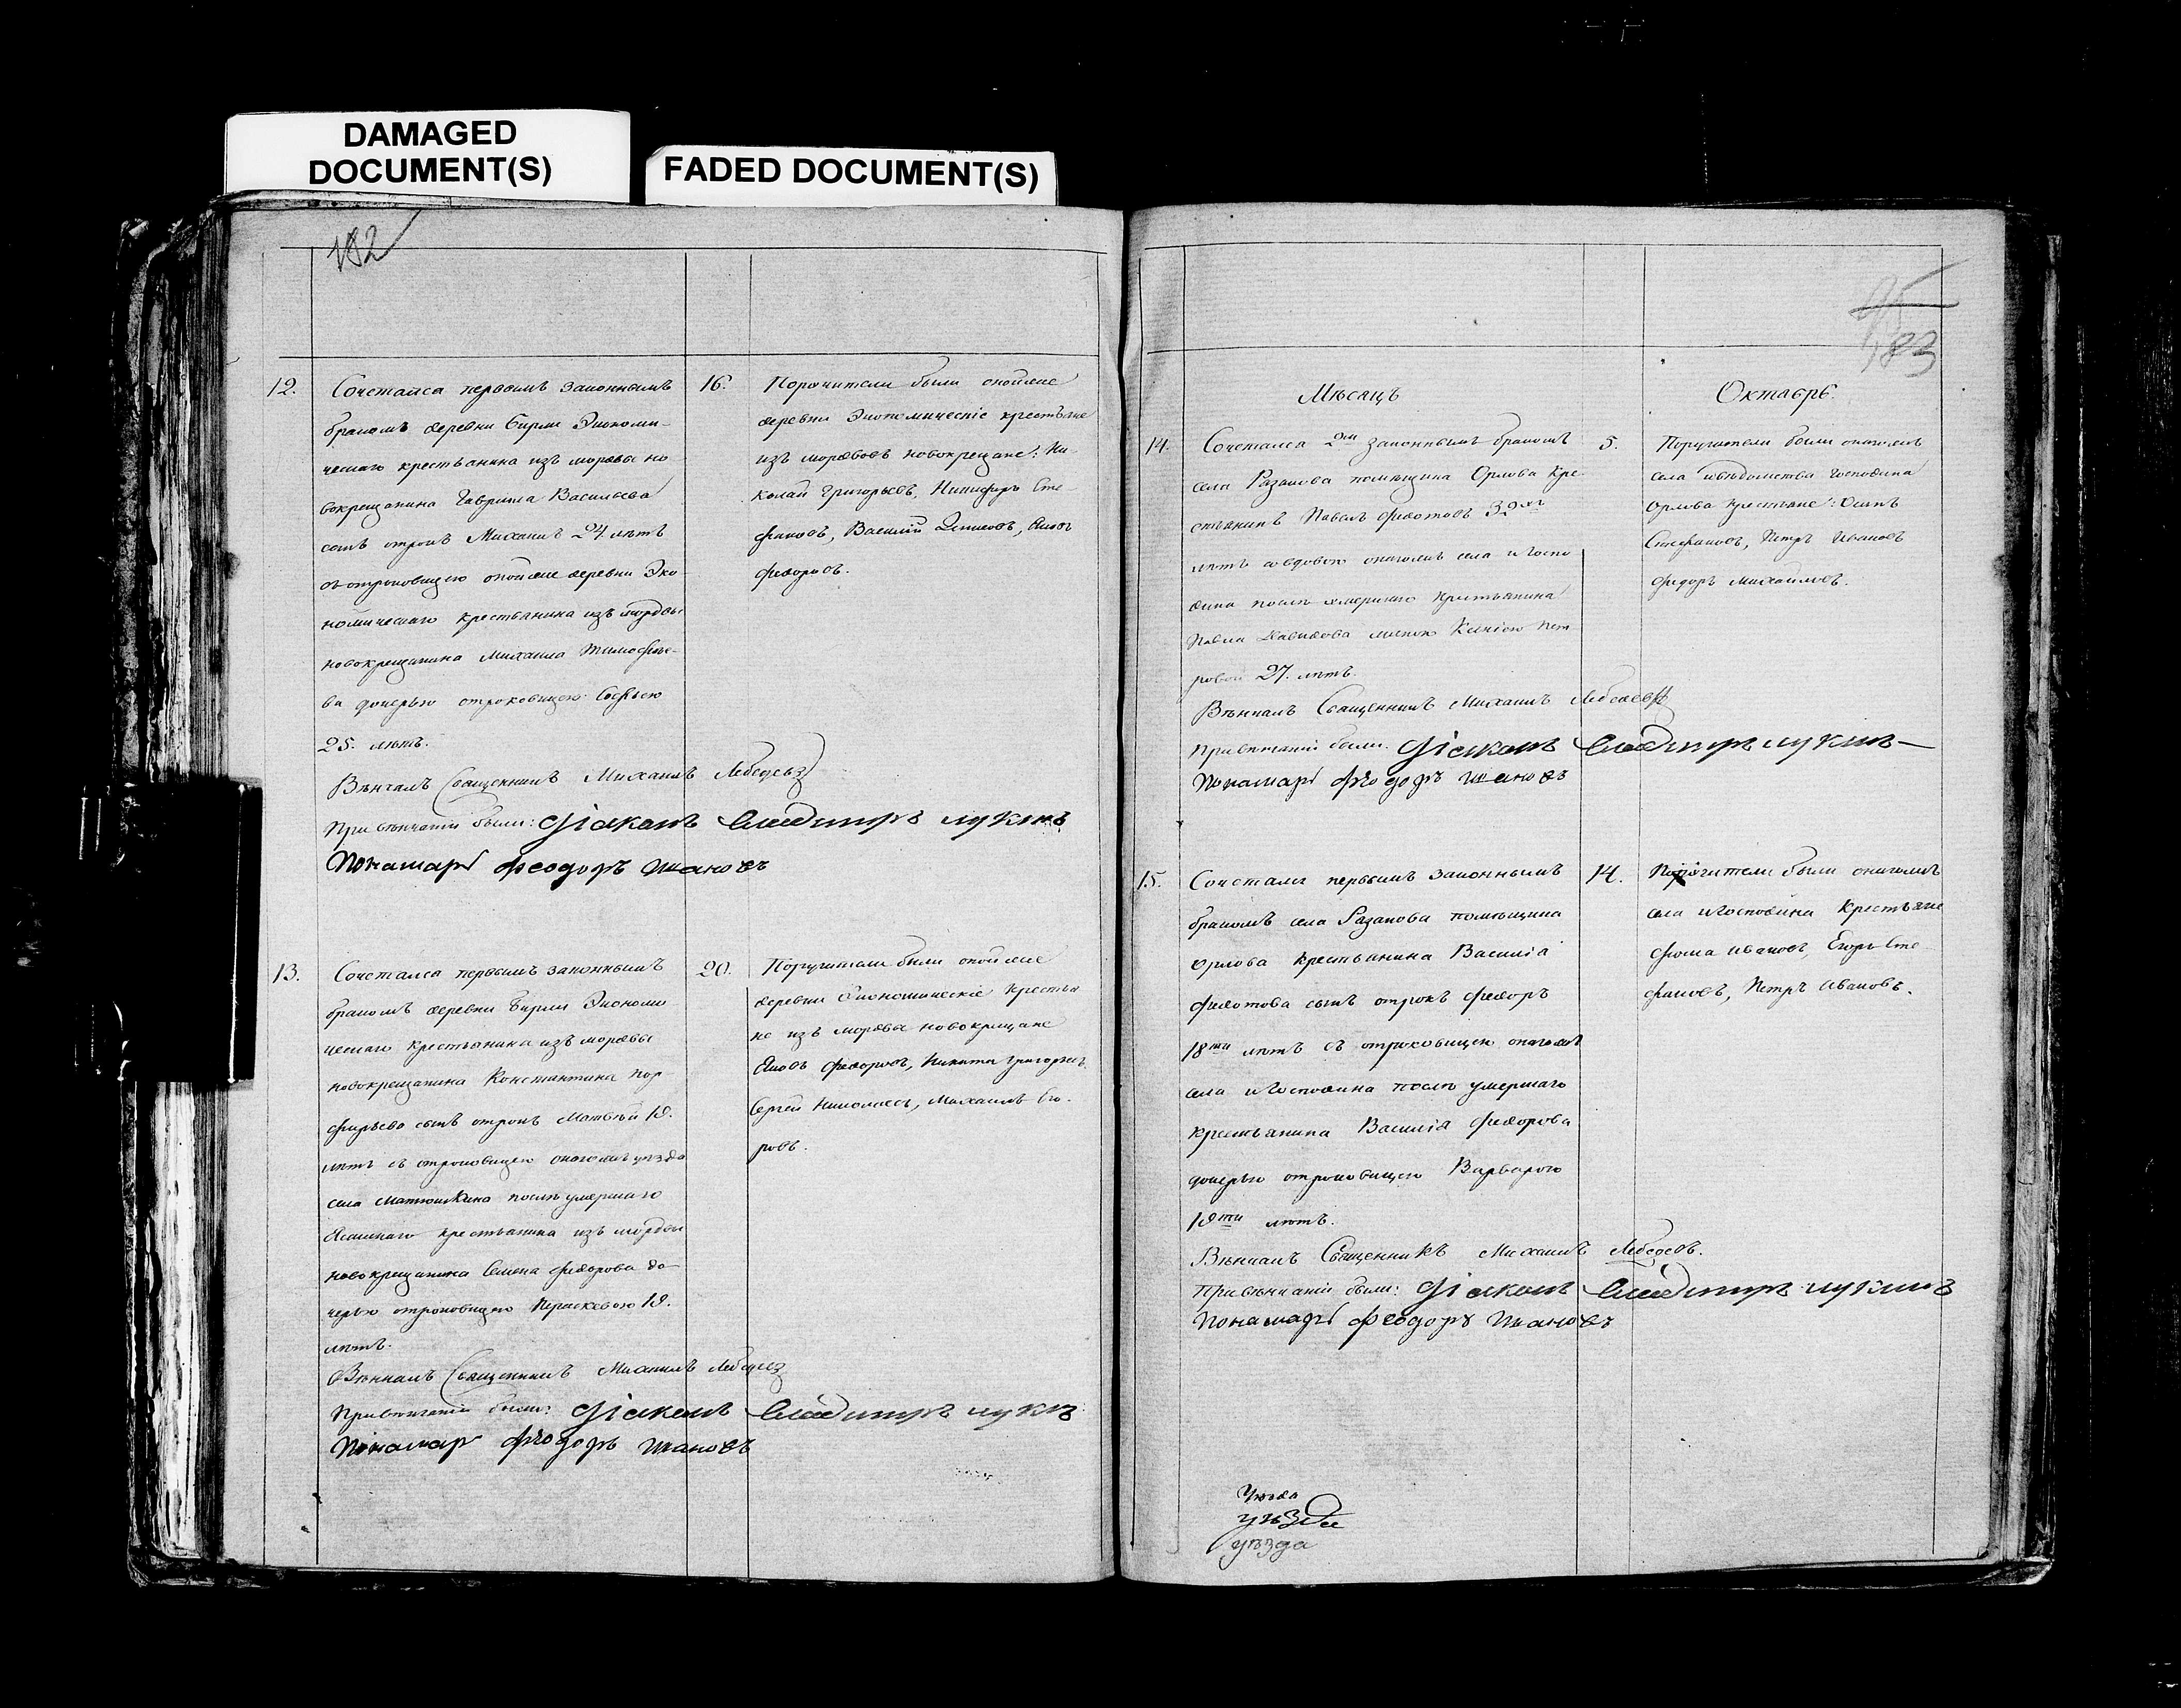 DAMAGED
DOCUMENT(S)
FADED DOCUMENT(S)
182
12.
Сочетался первымъ законнымъ
бракомъ деревни Бирли Экономи-
ческаго крестьянина изъ мордвы но
вокрещанина Гаврила Васильева
сынъ отрокъ Михаилъ 24 летъ
съ отроковицею оной же деревни Эко
номическаго крестьянина изъ мордвы
новокрещанина Михаила Тимофѣе-
ва дочерью отроковицею Софьею
25. летъ.
Вѣнчалъ Священникъ Михаилъ Лебедевъ
При вѣнчаніи были: Діаконъ Владимиръ Лукинъ
Понамарь Феодоръ Ивановъ
16.
Поручители были оной же
деревни Экономическіе крестьяне
изъ мордвовъ новокрещане: Ни
колай Григорьевъ, Никифоръ Сте
фановъ, Василій Денисовъ, Яковъ
Федоровъ.
13.
Сочетался первымъ законнымъ
бракомъ деревни Бирли Экономи
ческаго крестьянина изъ мордвы
новокрещанина Константина Пор
фирьева сынъ отрокъ Матвѣй 18.
летъ съ отроковицею онагожъ уѣзда
села Матюшкина послѣ умершаго
Ясашнаго крестьянина изъ мордвы
новокрещанина Семена Федорова до
черью отроковицею Параскевою 18.
летъ.
Вѣнчалъ Священникъ Михаилъ Лебедевъ
При вѣнчаніи были: Діаконъ Владимиръ Лукинъ
Понамарь Феодоръ Ивановъ
20.
Поручители были оной же
деревни Экономическіе крестья
не изъ мордвы новокрещане
Яковъ Федоровъ, Никита Григорьевъ,
Сергей Николаевъ, Михаилъ Его-
ровъ.
183
Мѣсяцъ
Октябрь.
14.
Сочетался 2мъ законнымъ бракомъ
села Разанова помѣщика Орлова кре
стьянинъ Павелъ Федотовъ 32хъ
летъ со вдовою онагожъ села и Госпо
дина послѣ умершаго крестьянина
Павла Давидова женою Ксеніею Пет
ровой 27. летъ.
Вѣнчалъ Священникъ Михаилъ Лебедевъ
При вѣнчаніи были: Діаконъ Владимиръ Лукинъ
Понамарь Феодоръ Ивановъ
5.
Поручители были онагожъ
села и вѣдомства Господина
Орлова крестьяне: Осипъ
Стефановъ, Петръ Ивановъ
Федоръ Михайловъ.
15.
Сочетался первымъ законнымъ
бракомъ села Разанова помѣщика
Орлова крестьянина Василія
Федотова сынъ отрокъ Федоръ
18ти летъ съ отроковицею онагожъ
села и Господина послѣ умершаго
крестьянина Василія Федорова
дочерью отроковицею Варварою
18ти летъ.
Вѣнчалъ Священникъ Михаилъ Лебедевъ.
При вѣнчаніи были: Діаконъ Владимиръ Лукинъ
Понамарь Феодоръ Ивановъ
14.
Поручители были онагожъ
села и Господина Крестьяне
Фома Ивановъ, Егоръ Сте
фановъ, Петръ Ивановъ.
Уѣзда
уѣзда
уѣзда